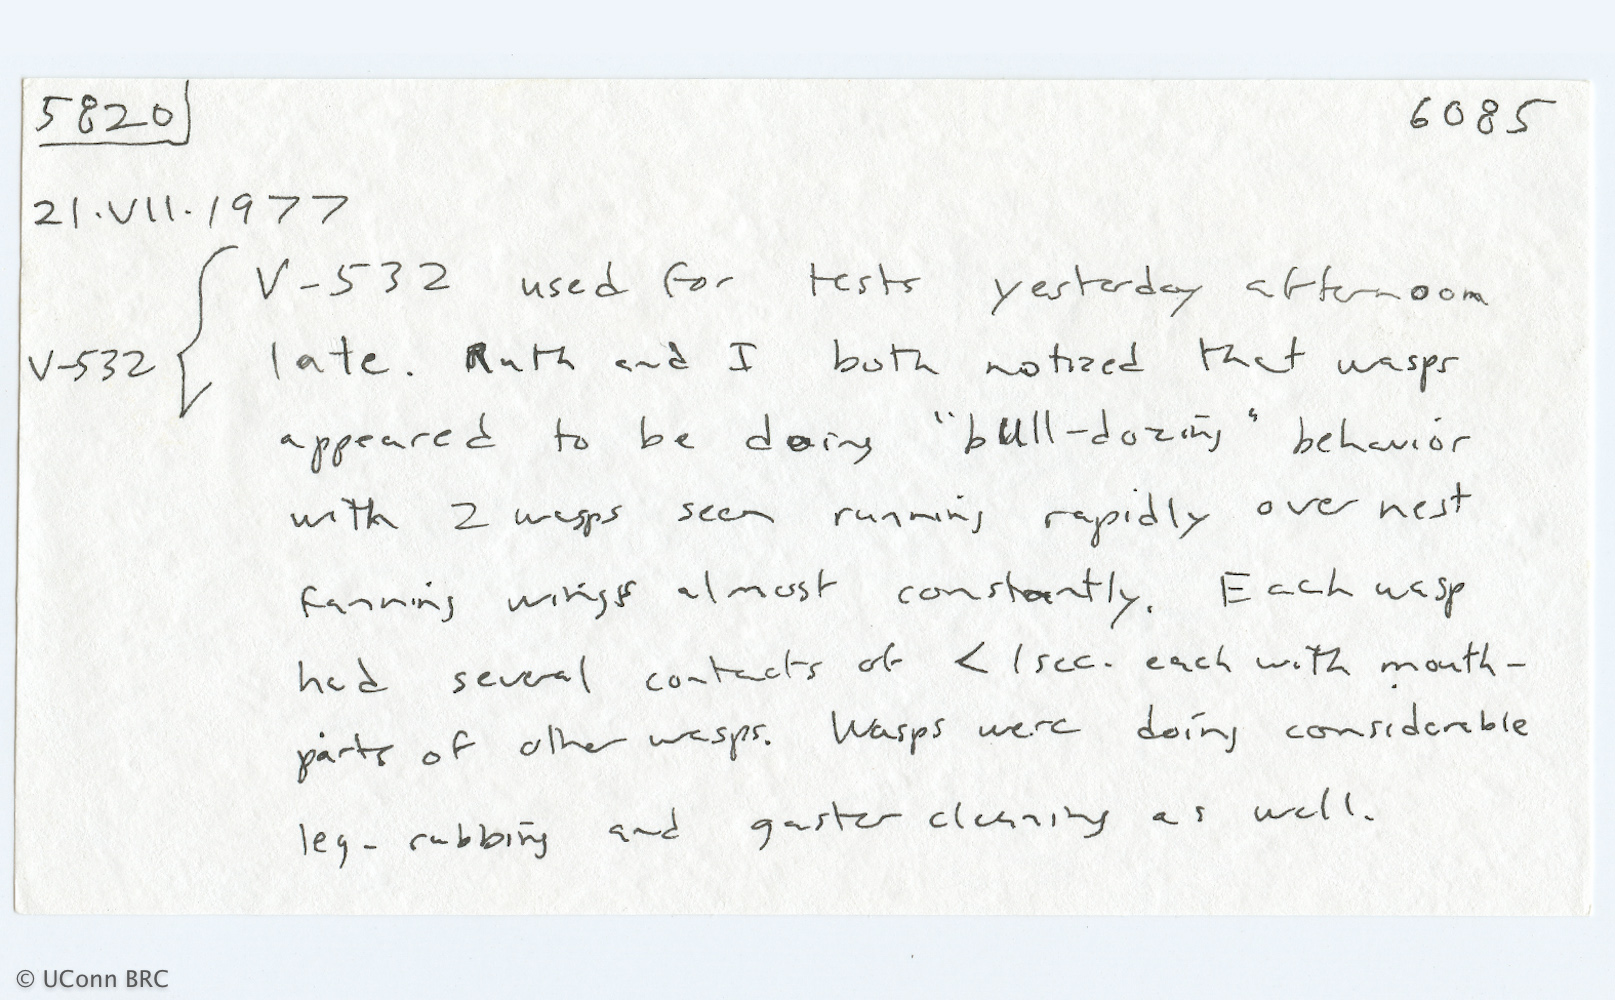 5820 6085
21.VII.1977
V-532 used for tests yesterday afternoon
V-532 late. Ruth and I both noticed that wasps
appeared to be doing "bull-dozing" behavior
with 2 wasps seen running rapidly over nest
fanning wings almost constantly. Each wasp
had several contacts of < 1 sec. each with mouth-
parts of other wasps. Wasps were doing considerable
leg-rubbing and gaster cleaning as well.
© UConn BRC